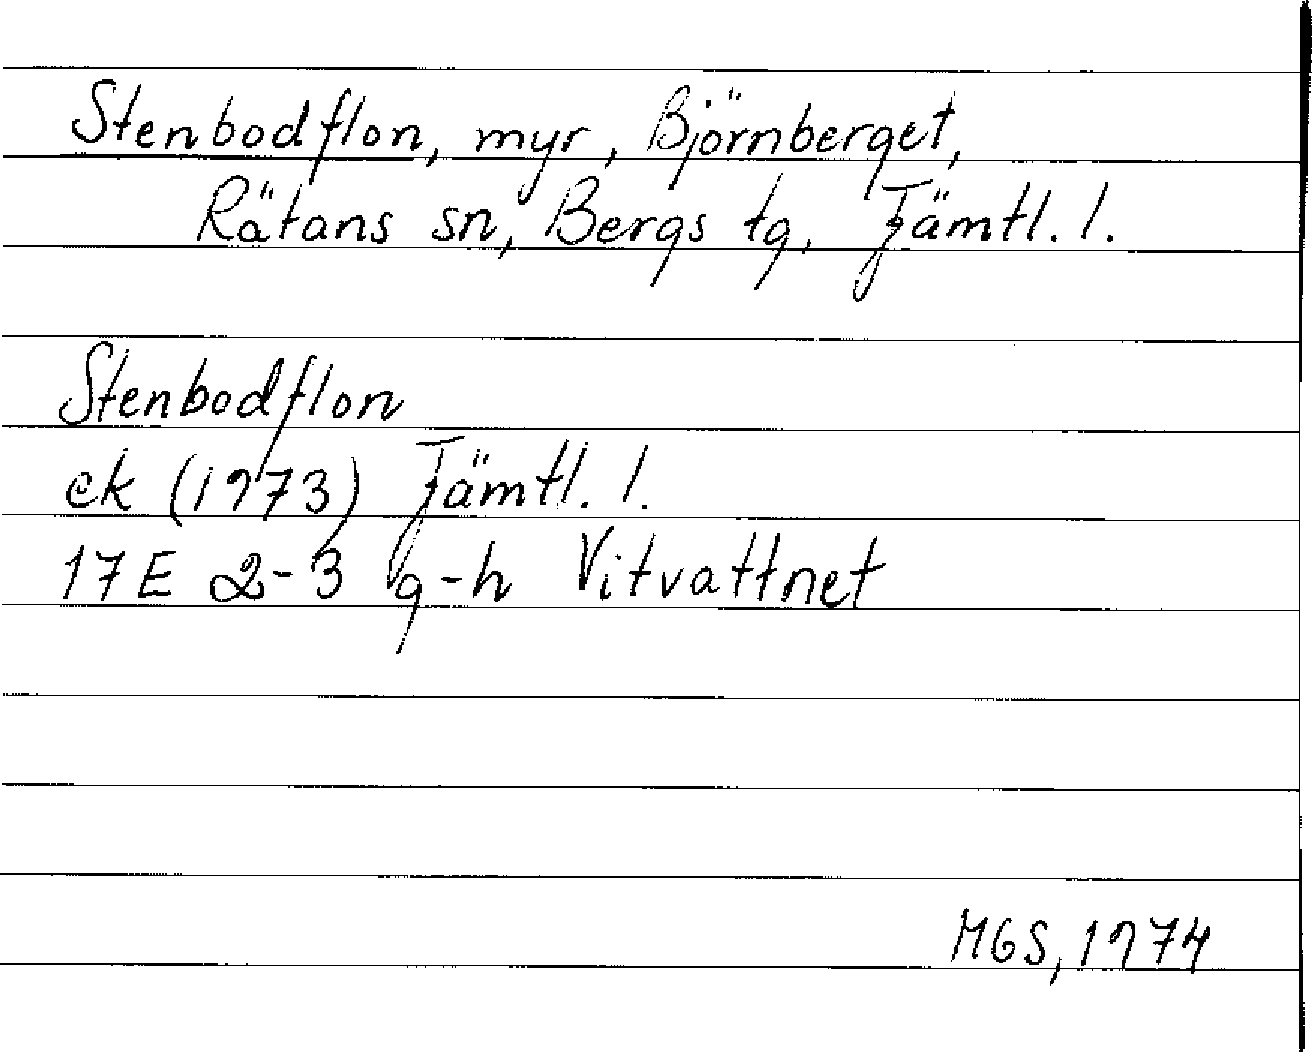 Stenbodflon, myr, Björnberget,
Rätans sn, Bergs tg, Jämtl. l.
Stenbodflon
ek (1973) Jämtl. l.
17E 2-3 g-h Vitvattnet
MGS, 1974